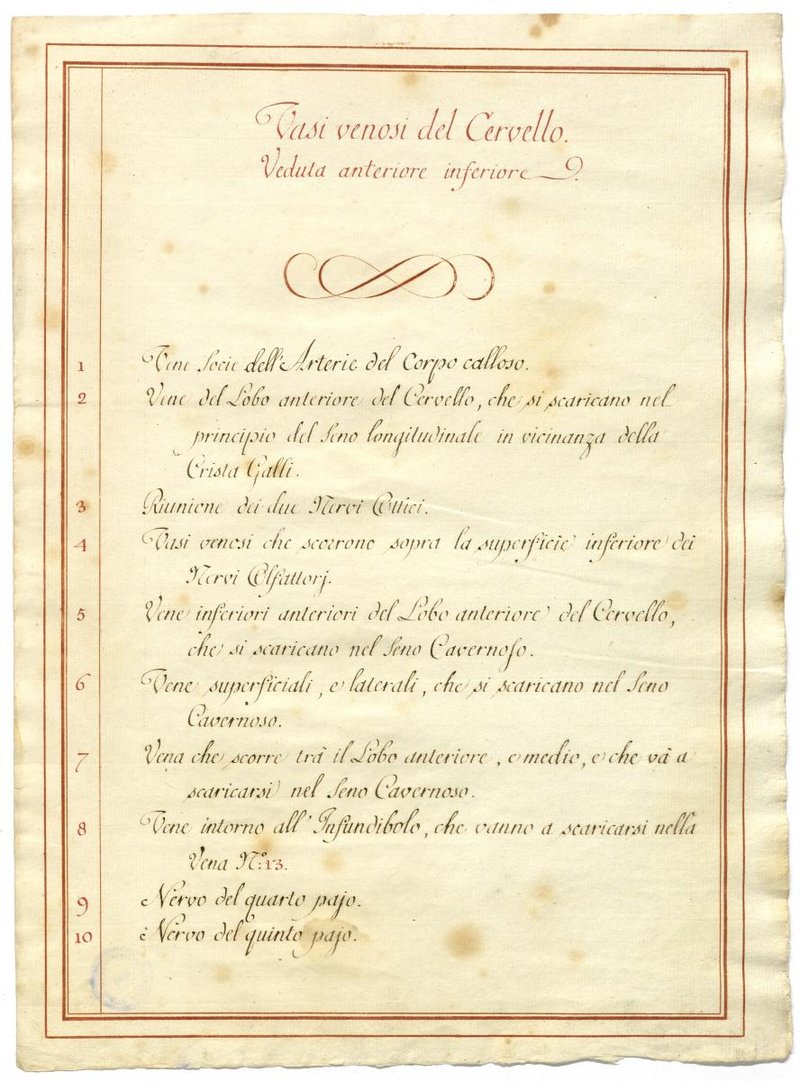 Vasi venosi del Cervello.
Veduta anteriore inferiore
1 Vene Socie dell'Arterie del Corpo calloso.
2 Vene del Lobo anteriore del Cervello, che si scaricano nel
principio del Seno longitudinale in vicinanza della
Crista Galli.
3 Riunione dei due Nervi Ottici.
4 Vasi venosi che scorrono sopra la superficie inferiore dei
Nervi Olfattorj.
5 Vene inferiori anteriori del Lobo anteriore del Cervello,
che si scaricano nel Seno Cavernoso.
6 Vene superficiali, e laterali, che si scaricano nel Seno
Cavernoso.
7 Vena che scorre trà il Lobo anteriore, e medio, e che và a
scaricarsi nel Seno Cavernoso.
8 Vene intorno all'Infundibolo, che vanno a scaricarsi nella
Vena N.º 13.
9 Nervo del quarto pajo.
10 Nervo del quinto pajo.